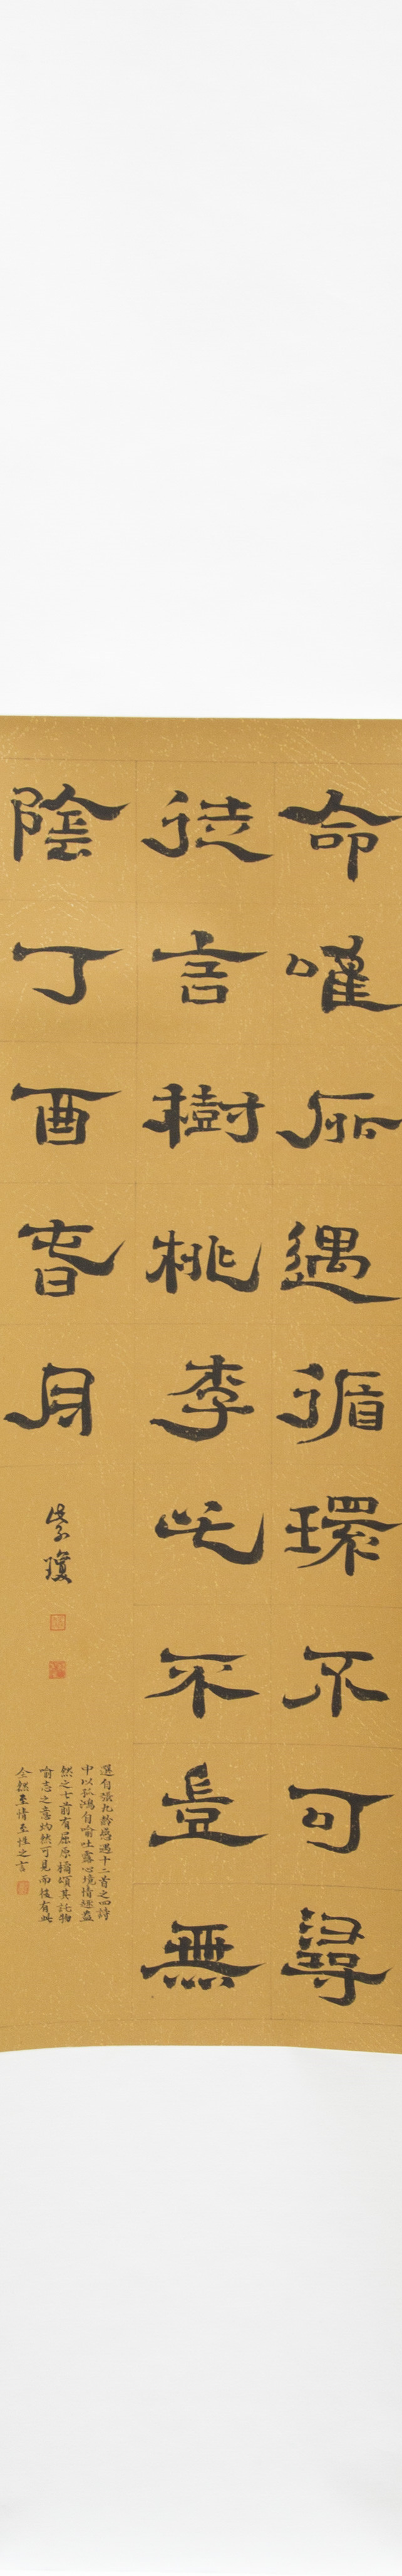 命唯所遇循環不可尋
徒言樹桃李此木豈無
陰丁酉春月
紫瓊
選自張九齡感遇十二首之四詩
中以孤鴻自喻吐露心境情趣盎
然之七前有屈原橘頌其託物
喻志之意灼然可見而後有此
全然至情至性之言